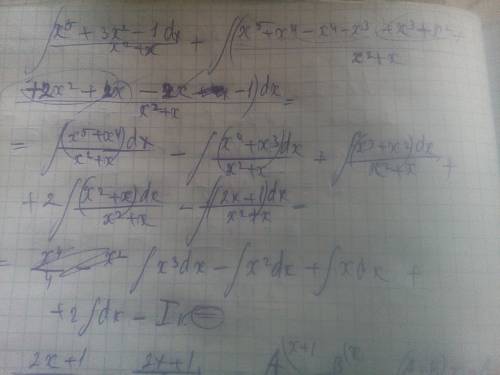 ∫ (x⁵ + 3x² − 1)dx / (x² + x) + ∫ (x⁵ + x⁴ − x⁴ − x³ + x³ + x² +
+ 2x² + 2x − 2x − 1)dx / (x² + x) =
= ∫ (x⁵ + x⁴)dx / (x² + x) − ∫ (x⁴ + x³)dx / (x² + x) + ∫ (x³ + x²)dx / (x² + x) +
+ 2 ∫ (x² + x)dx / (x² + x) − ∫ (2x + 1)dx / (x² + x) =
= ∫ x³dx − ∫ x²dx + ∫ xdx +
+ 2 ∫ dx − I =
2x + 1 2x + 1 A (x + 1 B (x